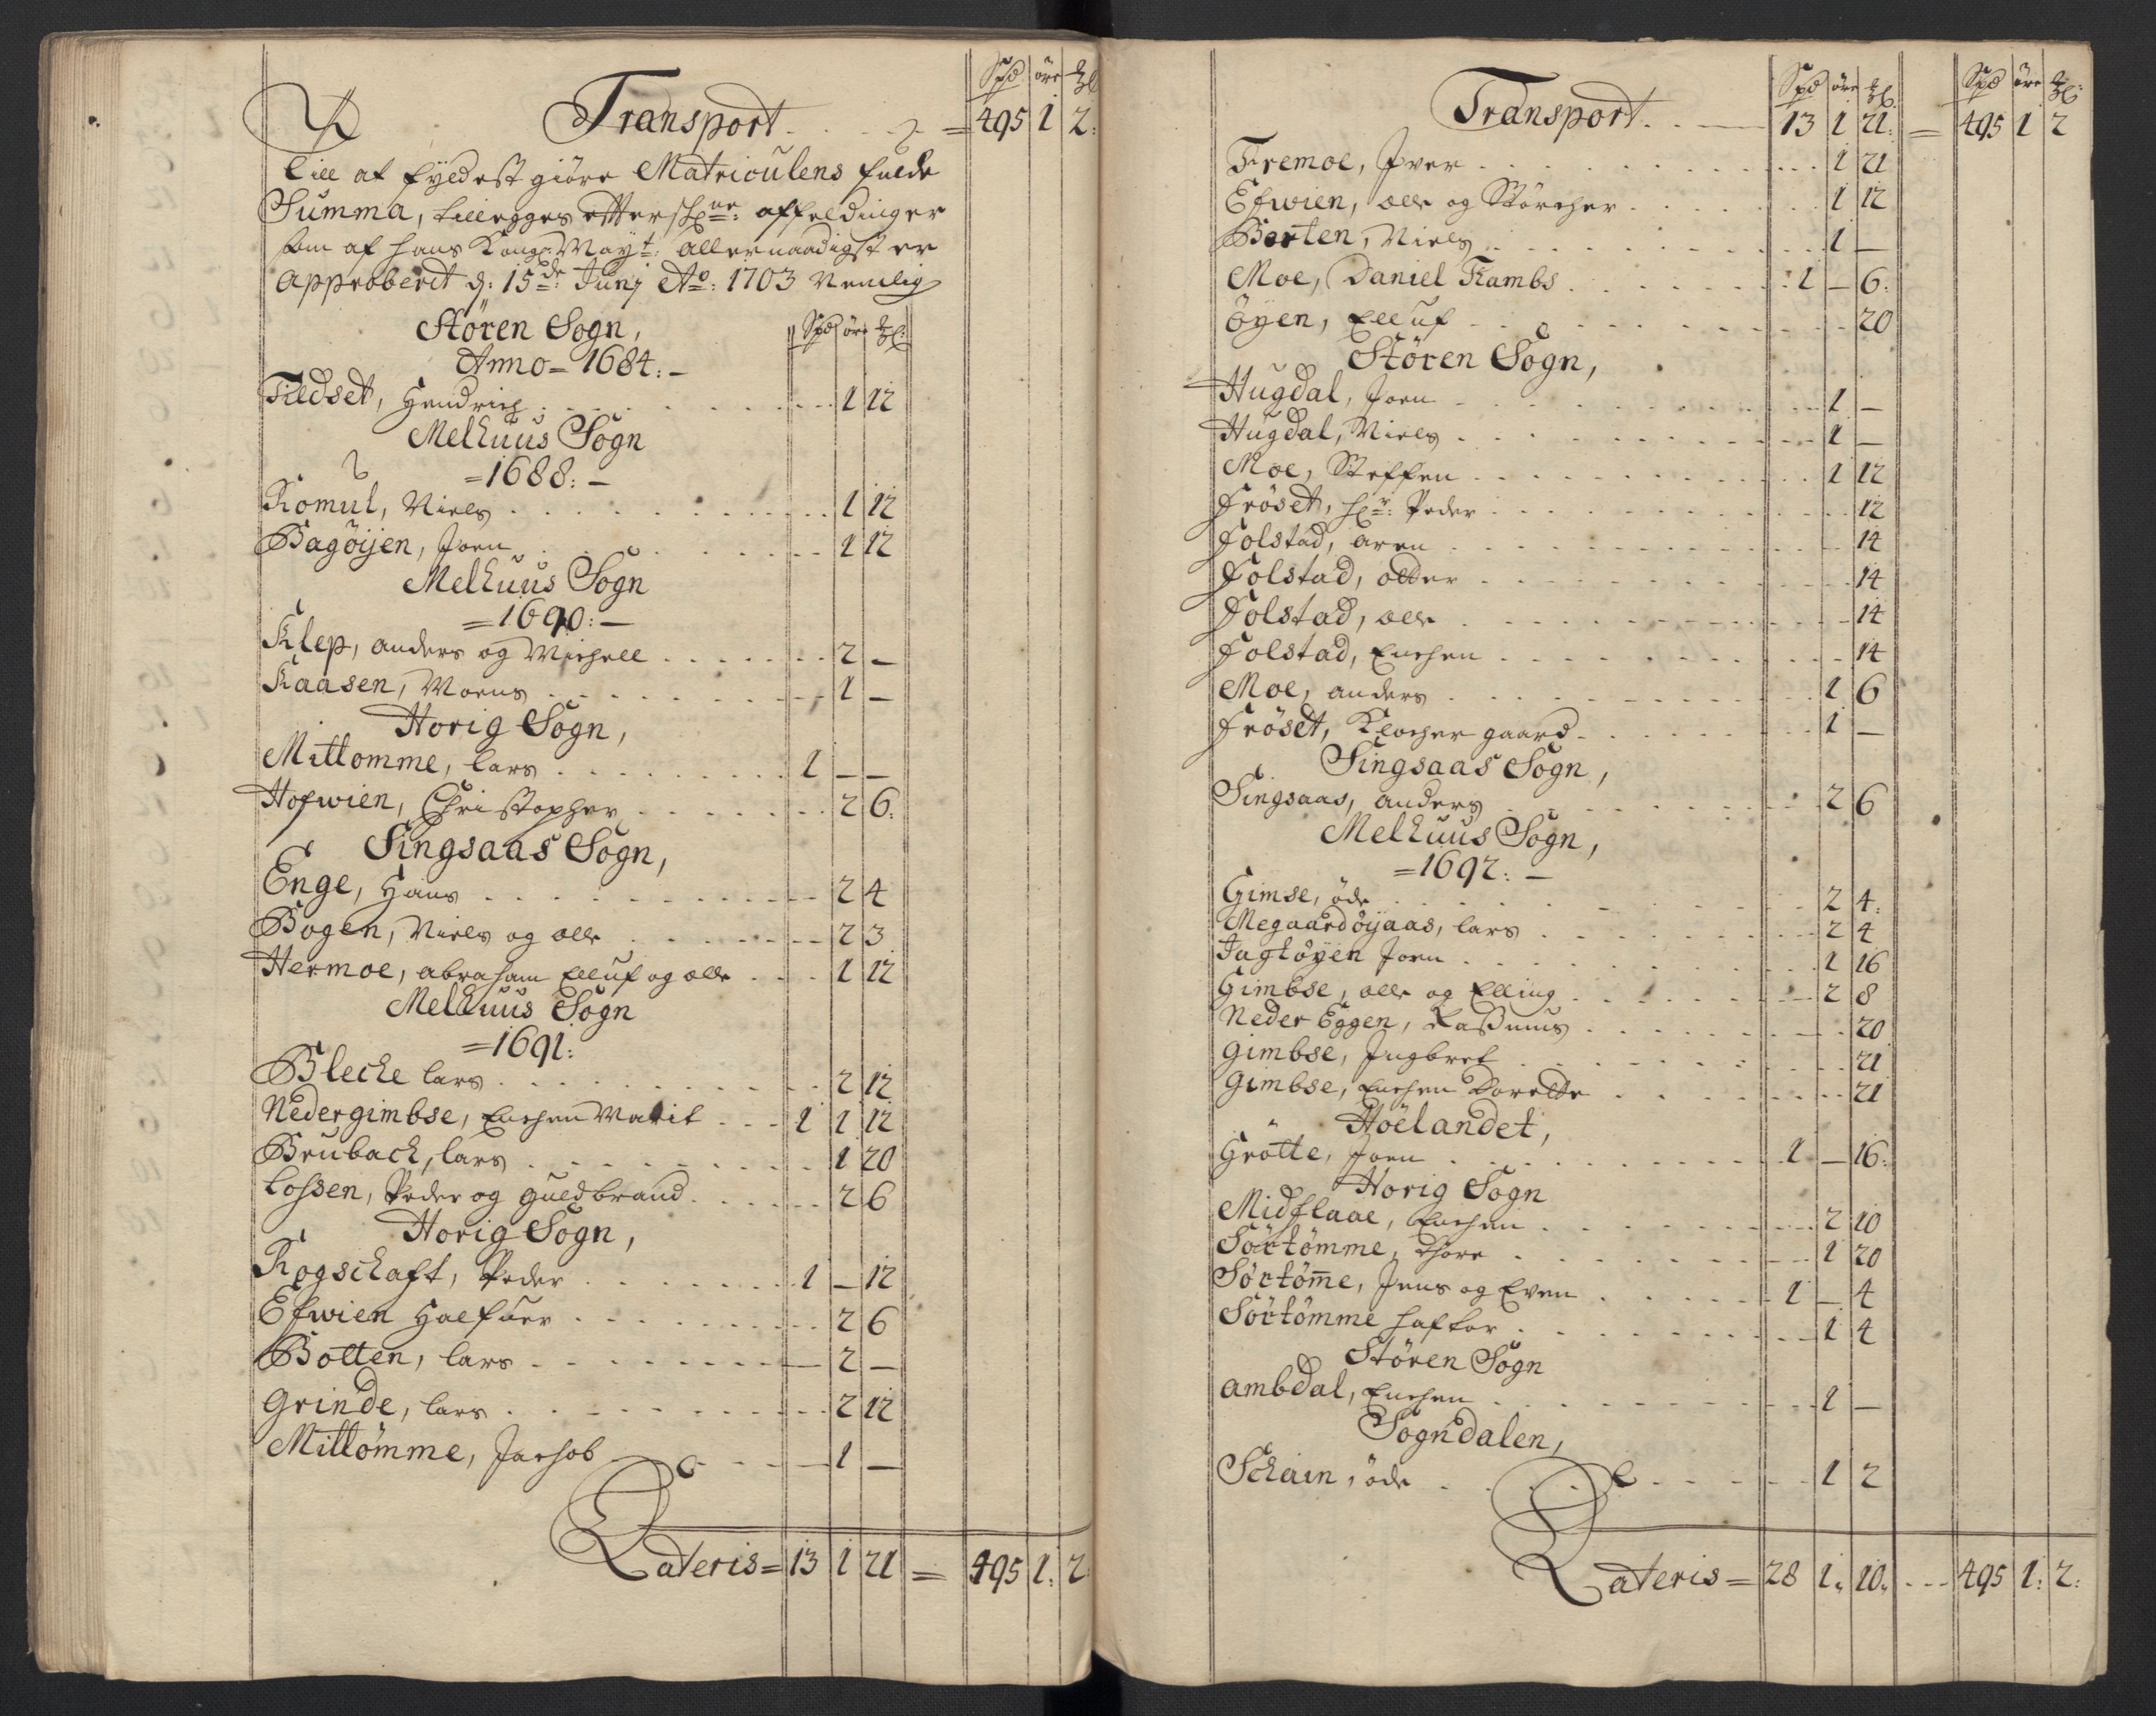 Spd öre ꝟl
Transport = 495 1 2:
Till at fyldest giöre Matriculens fulde
Summa, tillegges effterschne: affeldinger
som af hans Kongl: Mayt: allernaadigst er
approberit d: 15de Junj Ao: 1703 Nemlig
Stören Sogn, Spd öre
Anno = 1684: –
Fledset, Hendrich 1 12
Melhuus Sogn
= 1688: –
Romul, Niels 1 12
Bagöijen, Joen 1 12
Melhuus Sogn
= 1690: –
Klep, anders og Michell 2 –
Kaasen, Moens 1 –
Horig Sogn,
Mittomme, lars 1 – –
Hofwien, Christopher 2 6:
Singsaas Sogn,
Enge, Hans 2 4
Bogen, Niels og olle 2 3
Hermoe, abraham Elluf og olle 1 12
Melhuus Sogn
= 1691:
Blecke lars 2 12
Nedergimbse, Enchen Marit 1 1 12
Brubach, lars 1 20
Lossen, Peder og guldbrand 2 6
Horig Sogn,
Rogschaft, Peder 1 – 12
Efwien Halfuer 2 6
Botten, lars 2 –
Grinde, lars 2 12
Mittömme, Jachob 1 –
Lateris = 13 1 21 = 495 1: 2:
Spd öre Spd öre
Transport 13 1 21: = 495 1 2
Fremoe, Iver 1 21
Efwien, olle og Störcher 1 12
Borten, Niels 1 –
Moe, Daniel Kambs 1 – 6:
Öyen, Elluf 20
Stören Sogn,
Hugdal, Joen 1 –
Hugdal, Niels 1 –
Moe, Steffen 1 12
Fröset, hr: Peder 12
Folstad, aren 14
Folstad, otter 14
Folstad, olle 14
Folstad, Enchen 14
Moe, anders 1 6
Fröset, Klocher gaard 1 –
Singsaas Sogn,
Singsaas, anders 2 6
Melhuus Sogn,
= 1692: –
Gimse, öde 2 4:
Megaardöyaas, lars 2 4
Jagtöyen Joen 1 16
Gimbse, olle og Elling 2 8
Neder Eggen, Rasmus 20
Gimbse, Ingbret 21
Gimbse, Enchen Dorette 21
Höelandet,
Grötte, Joen 1 – 16:
Horig Sogn
Midflaae, Enchen 2 10
Sörtömme, Thore 1 20
Sörtöm̅e, Jens og Even 1 – 4
Sörtömme haftor 1 4
Stören Sogn
ambdal, Enchen 1 –
Sogndalen,
Schein, öde 1 2
Lateris = 28 1: 10: 495 1: 2: